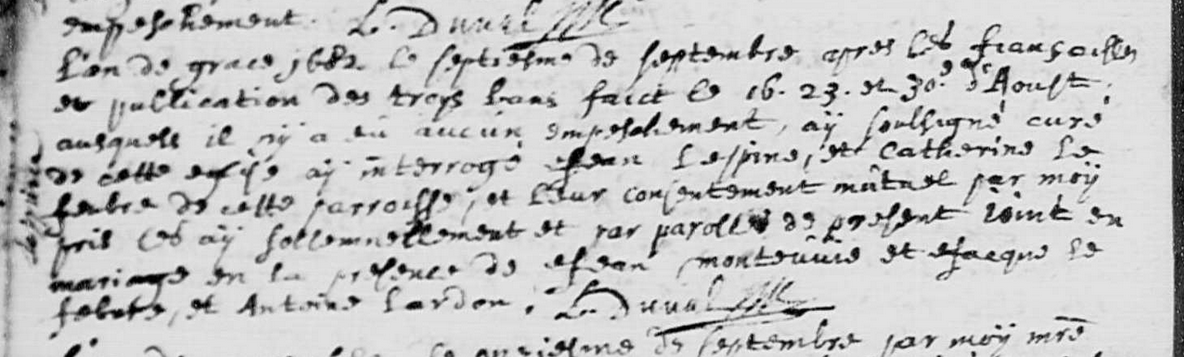 empeschement. L. Duval
L'an de grace 1682. le septiesme de septembre apres les fiançailles
et publication des troys bans faict le 16. 23. et 30e d'Aoust,
ausquels il n'y a eü aucun empeschement, aÿ soussigné curé
de cette eglise aÿ interrogé Jean Lespine, et Catherine le
febvre de cette parroisse, et leur consentement mütuel par moÿ
pris les aÿ sollemnellement et par parolles de present joint en
mariage en la presence de Jean et Jacque le
febvre, et Antoine Lardon. L. Duval
Lespine
de septembre par moÿ mre